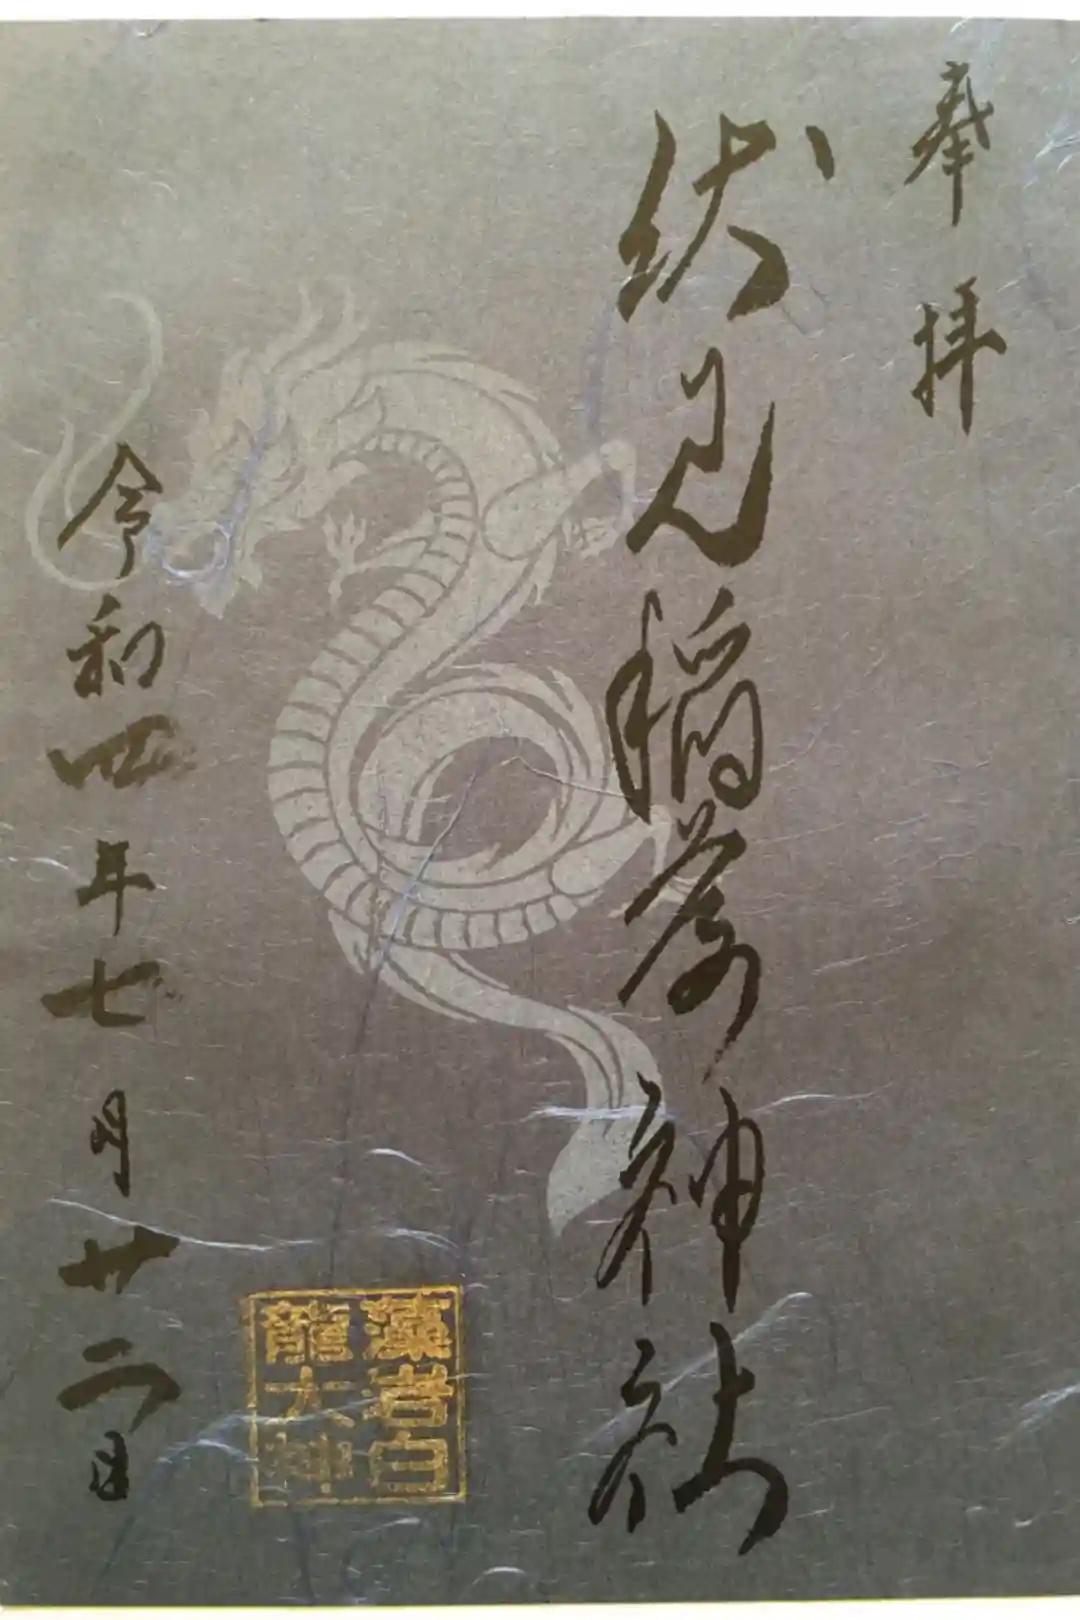 奉拝
伏見稲荷神社
令和四年七月廿二日
藻岩白
龍大神